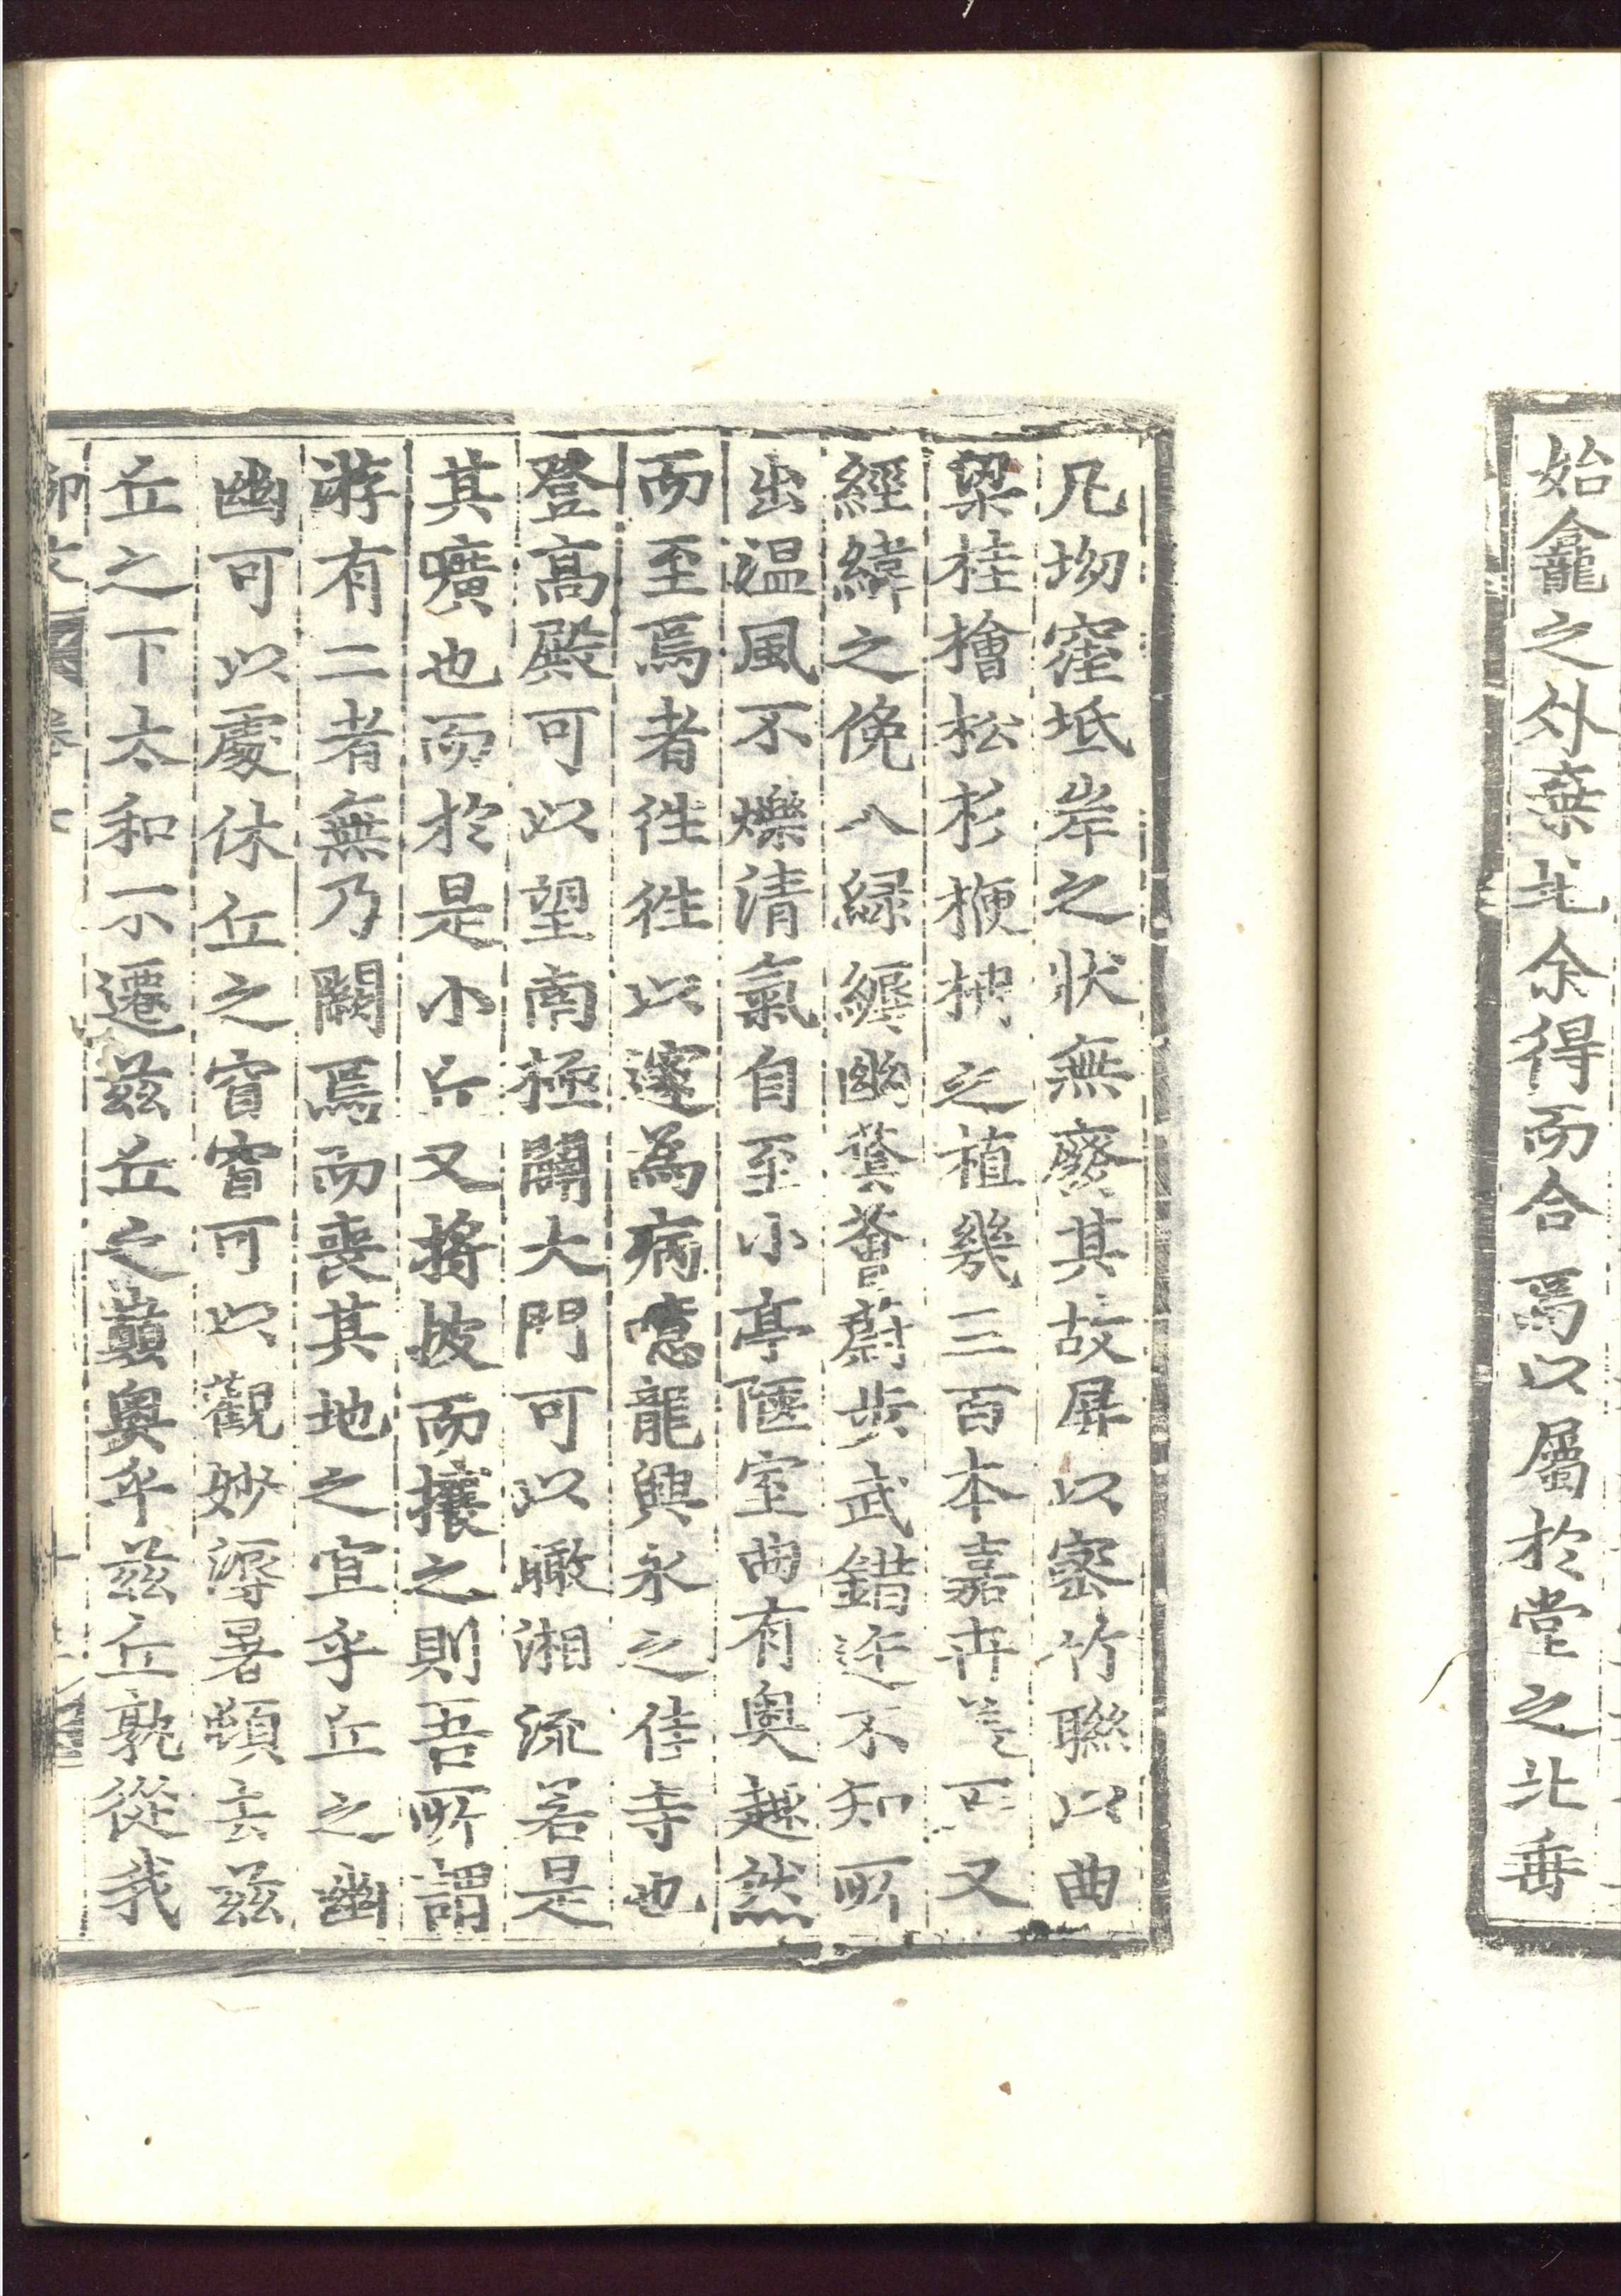 始龕之外棄地余得而合焉以屬於堂之北垂
凡坳窪坻岸之狀無廢其故屏以密竹聯以曲
梁桂檜松杉楩柟之植幾三百本嘉卉美石又
經緯之俛入緑縟幽蔭薈蔚步武錯迕不知所
出温風不爍清氣自至小亭陿室曲有奧趣然
而至焉者徃徃以邃為病噫龍興永之佳寺也
登高殿可以望南極闢大門可以瞰湘流若是
其曠也而於是小丘又將披而攘之則吾所謂
游有二者無乃闕焉而喪其地之宜乎丘之幽
幽可以處休丘之窅窅可以觀妙溽暑頓去兹
丘之下太和不遷兹丘之巔奥乎兹丘孰從我